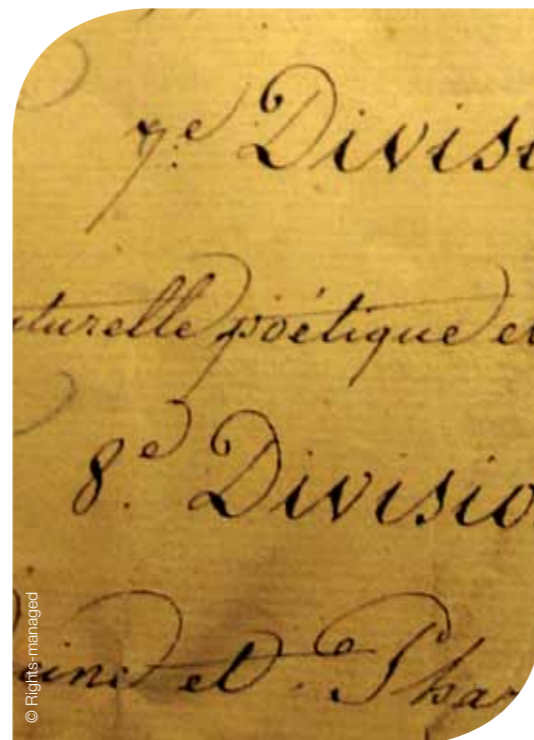 7.e Divisi
turelle poétique et
8.e Divisio
cine et Phar
© Rights-managed